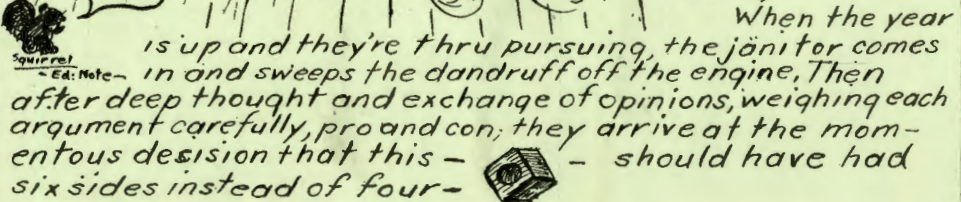 When the year
is up and they're thru pursuing, the janitor comes
Squirrel
-Ed: Note- in and sweeps the dandruff off the engine, Then
after deep thought and exchange of opinions, weighing each
argument carefully, pro and con; they arrive at the mom-
entous desision that this - - should have had
six sides instead of four-